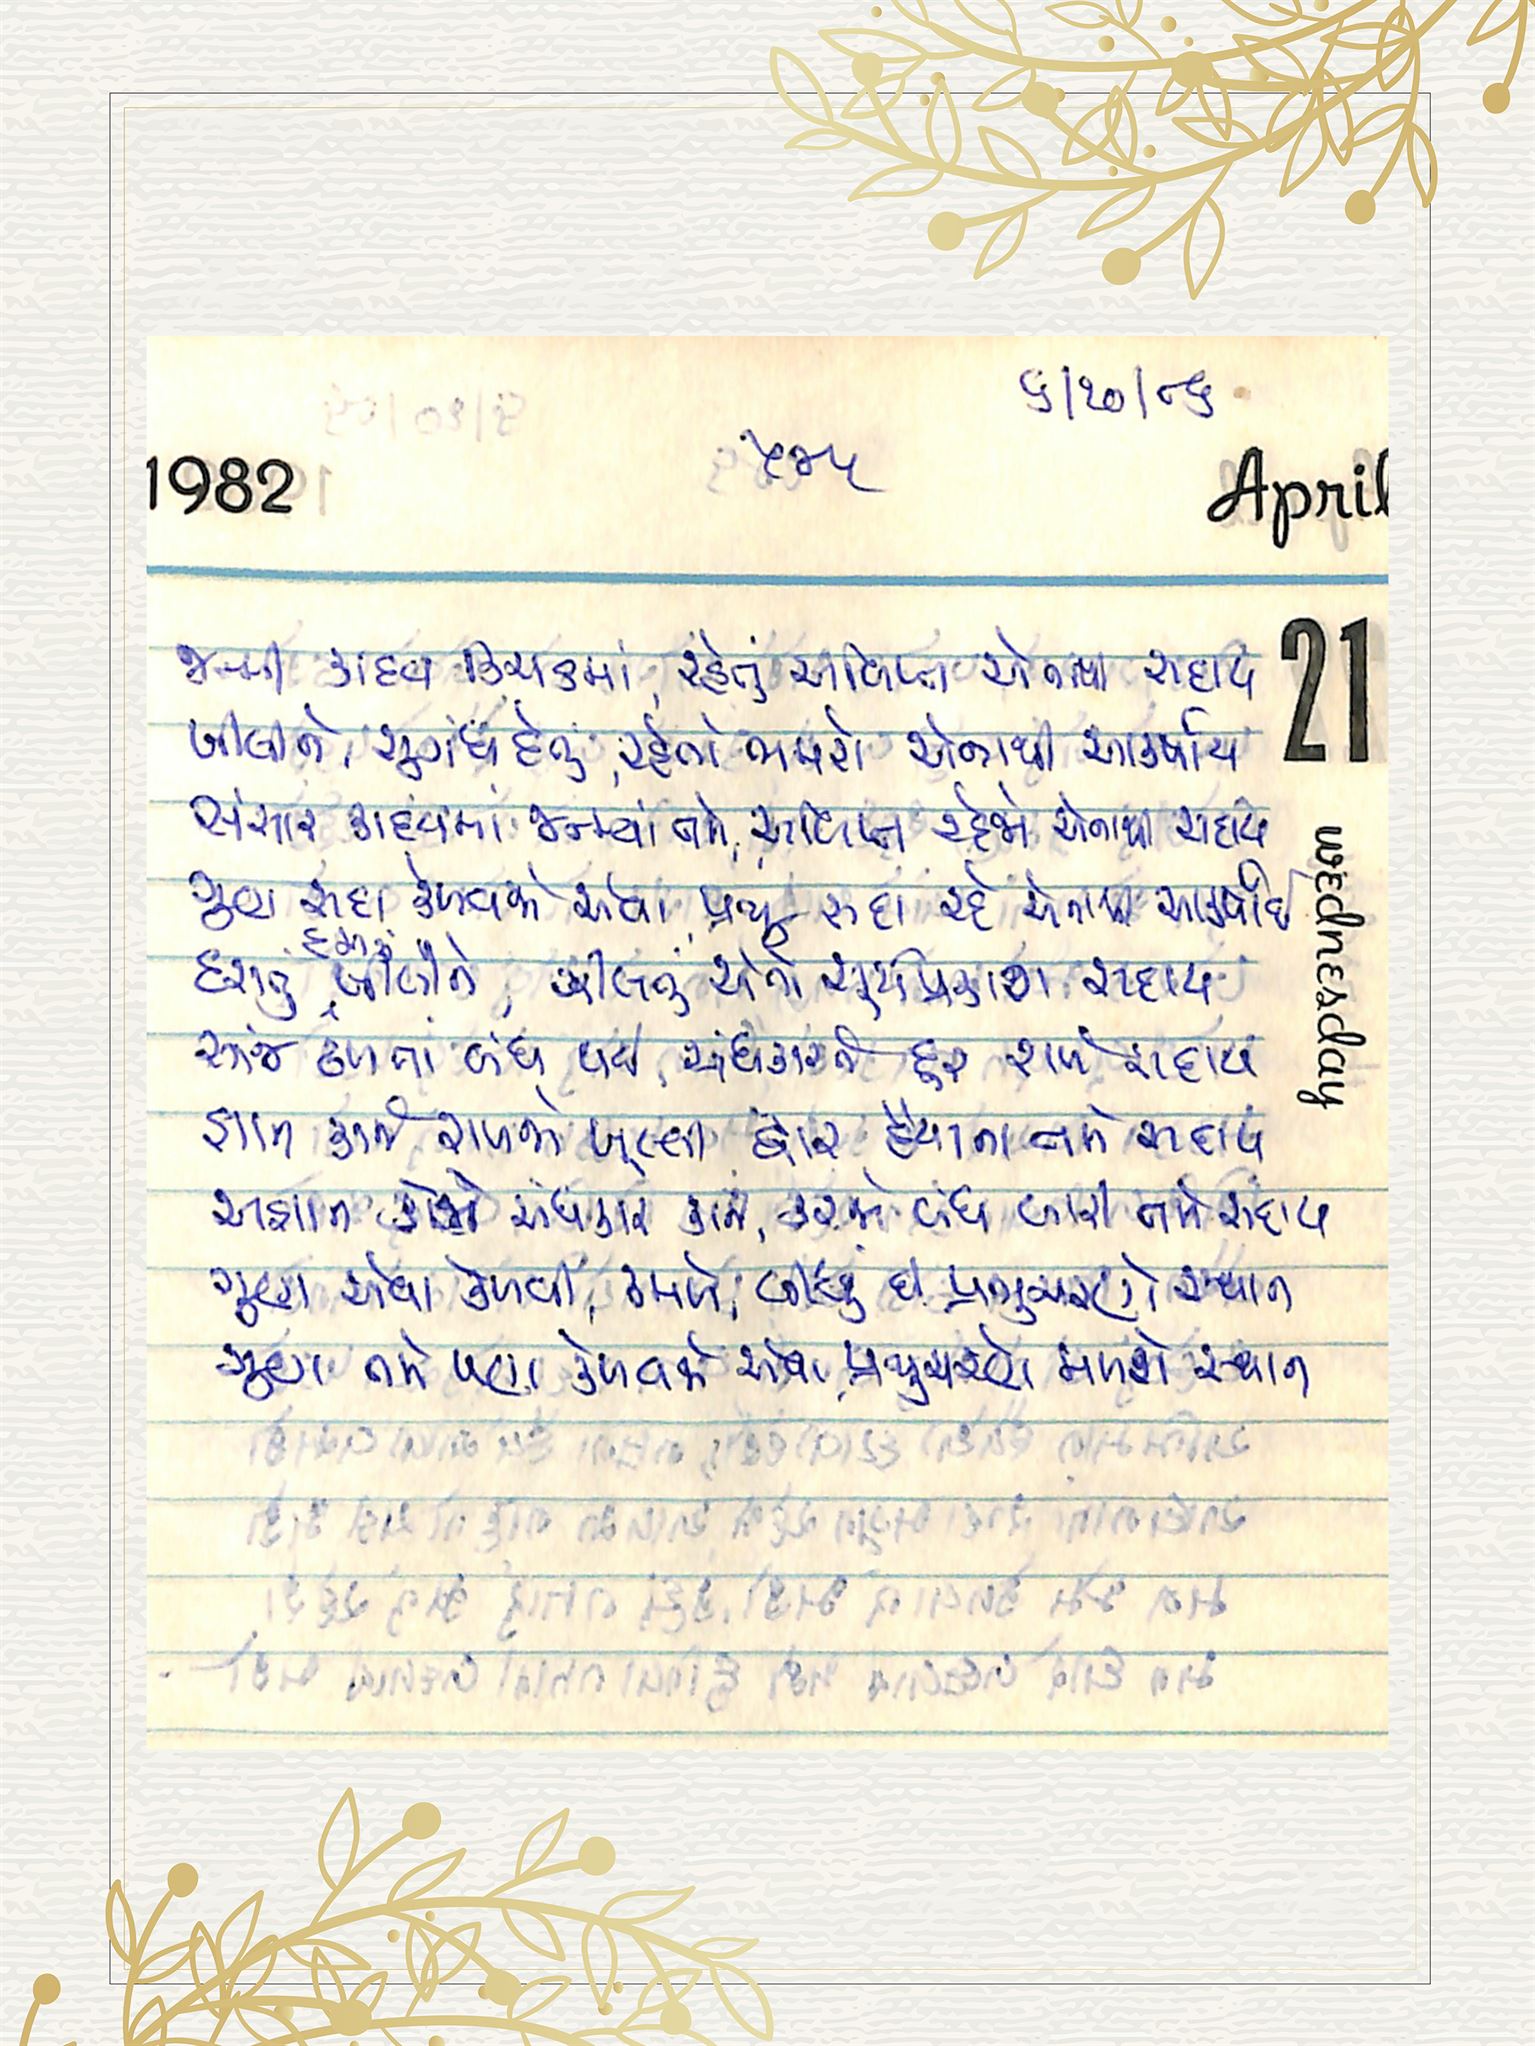 ૬/૧૦/૮૬
1982
April
21
wednesday
જન્મી કાદવ કિચડમાં, રહેતું અલિપ્ત એનાથી સદાય
ખીલીને, સુગંધ દેતું, રહેતો ભમરો એનાથી આકર્ષાય
સંસાર કાદવમાં જન્મ્યાં તમે, અલિપ્ત રહેજો એનાથી સદાય
ગુણ સદા કેળવજો એવા, પ્રભુ સદા રહે એનાથી આકર્ષાઈ
હસતું કમળ ખીલીને, ઝીલતું એ તો સૂર્યપ્રકાશ સદાય
સાંજ ઢળતાં બંધ થઈ, અંધકારને દૂર રાખે સદાય
જ્ઞાન કાજે રાખજો ખુલ્લા દ્વાર હૈયાના તમે સદાય
અજ્ઞાન અંધકાર કાજે, કરજો બંધ બારી તમે સદાય
ગુણ એવા કેળવી, કમળે, લીધું છે પ્રભુચરણે સ્થાન
ગુણ તમે પણ કેળવજો એવા, પ્રભુચરણે મળશે સ્થાન